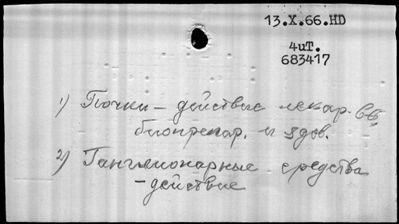 13.X.66.HD
4иТ.
683417
1) Почки – действие лекар. св.
биопрепар. и ядов.
2) Ганглионарные средства
– действие